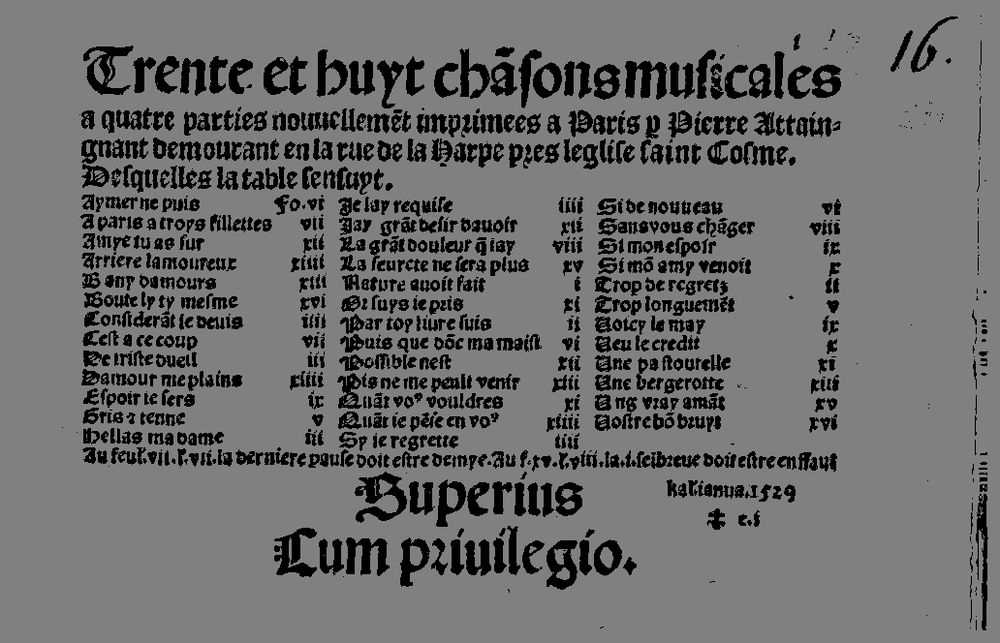 16.
Trente et huyt chãsons musicales
a quatre parties nouuellemẽt imprimees a Paris p Pierre Attain-
gnant demourant en la rue de la Harpe pres leglise saint Cosme.
Desquelles la table sensuyt.
Aymer ne puis Fo. vi Je lay requise iiii Si de nouueau vi
A paris a troys fillettes vii Jay grãt desir dauoir xii Sans vous chãger viii
Amye tu as sur xii La grãt douleur q̃ iay viii Si mon espoir ix
Arriere lamoureux xiiii La seurete ne sera plus xv Si mõ amy venoit x
Bany damours xiii Nature auoit fait i Trop de regretz ii
Boute ly ty mesme xvi Or suys ie pris xi Trop longuemẽt v
Considerãt ie deuis iiii Par toy liure suis ii Voicy le may ix
Cest a ce coup vii Puis que dõc ma maist vi Veu le credit x
De triste dueil iii Possible nest xii Une pastourelle xi
Damour me plains xiiii Pis ne me peult venir xiii Une bergerotte xiii
Espoir ie sers ix Quãt voꝰ vouldres xi Ung vray amãt xv
Gris ⁊ tenne v Quãt ie pẽse en voꝰ xiiii Vostre bõ bruyt xvi
Hellas ma dame iii Sy ie regrette iiii
Au feul. vii. l. vii. la derniere pause doit estre demye. Au f. xv. l. viii. la .i. seibreue doit estre en ffaut
Superius kal ianua. 1529
✠ c.i
Cum priuilegio.